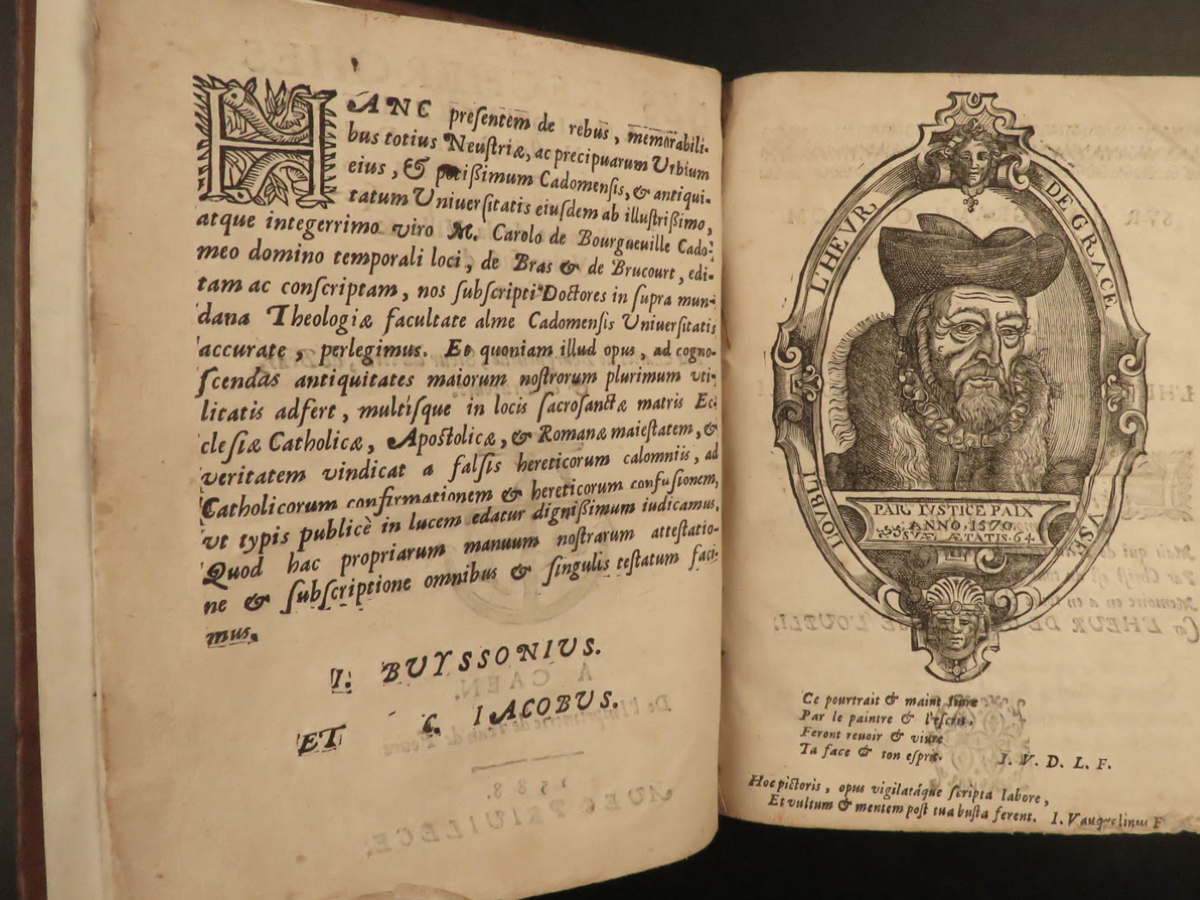 HANC presentem de rebus, memorabili-
bus totius Neustriæ, ac precipuarum Urbium
eius, & potißimum Cadomensis, & antiqui-
tatum Uniuersitatis eiusdem ab illustrißimo,
atque integerrimo viro M. Carolo de Bourgueuille Cado-
meo domino temporali loci, de Bras & de Brucourt, edi-
tam ac conscriptam, nos subscripti Doctores in supra mun-
dana Theologiæ facultate alme Cadomensis Uniuersitatis
accurate, perlegimus. Et quoniam illud opus, ad cogno-
scendas antiquitates maiorum nostrorum plurimum vti-
litatis adfert, multisque in locis sacrosanctæ matris Ec-
clesiæ Catholicæ, Apostolicæ, & Romanæ maiestatem, &
veritatem vindicat a falsis hereticorum calomniis, ad
Catholicorum confirmationem & hereticorum confusionem,
vt typis publicè in lucem edatur dignißimum iudicamus.
Quod hac propriarum manuum nostrarum attestatio-
ne & subscriptione omnibus & singulis testatum faci-
mus.
I. BUYSSONIUS.
ET C. IACOBUS.
A CAEN.
De l'Imprimerie de Iean de Feure
1588.
AVEC PRIVILEGE.
L'HEVR, DE GRACE
VSE L'OVBLI
PAR IVSTICE PAIX
ANNO. 1570.
SVÆ ÆTATIS. 64.
Ce pourtrait & maint liure
Par le paintre & l'escrit,
Feront reuoir & viure
Ta face & ton esprit.
I. V. D. L. F.
Hoc pictoris, opus vigilatáque scripta labore,
Et vultum & mentem post tua busta ferent. I. Vauquelinus F